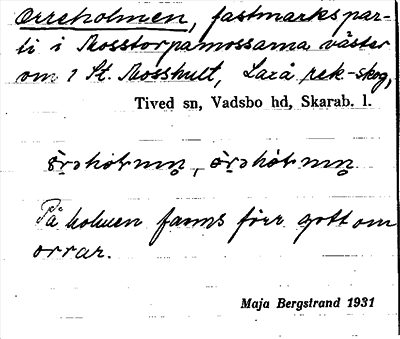 Orreholmen, fastmarkspar-
ti i Mosstorpamossarna väster
om 1 St. Mosshult, Laxå rek-skog,
Tived sn, Vadsbo hd, Skarab. l.
På holmen fanns förr gott om
orrar.
Maja Bergstrand 1931